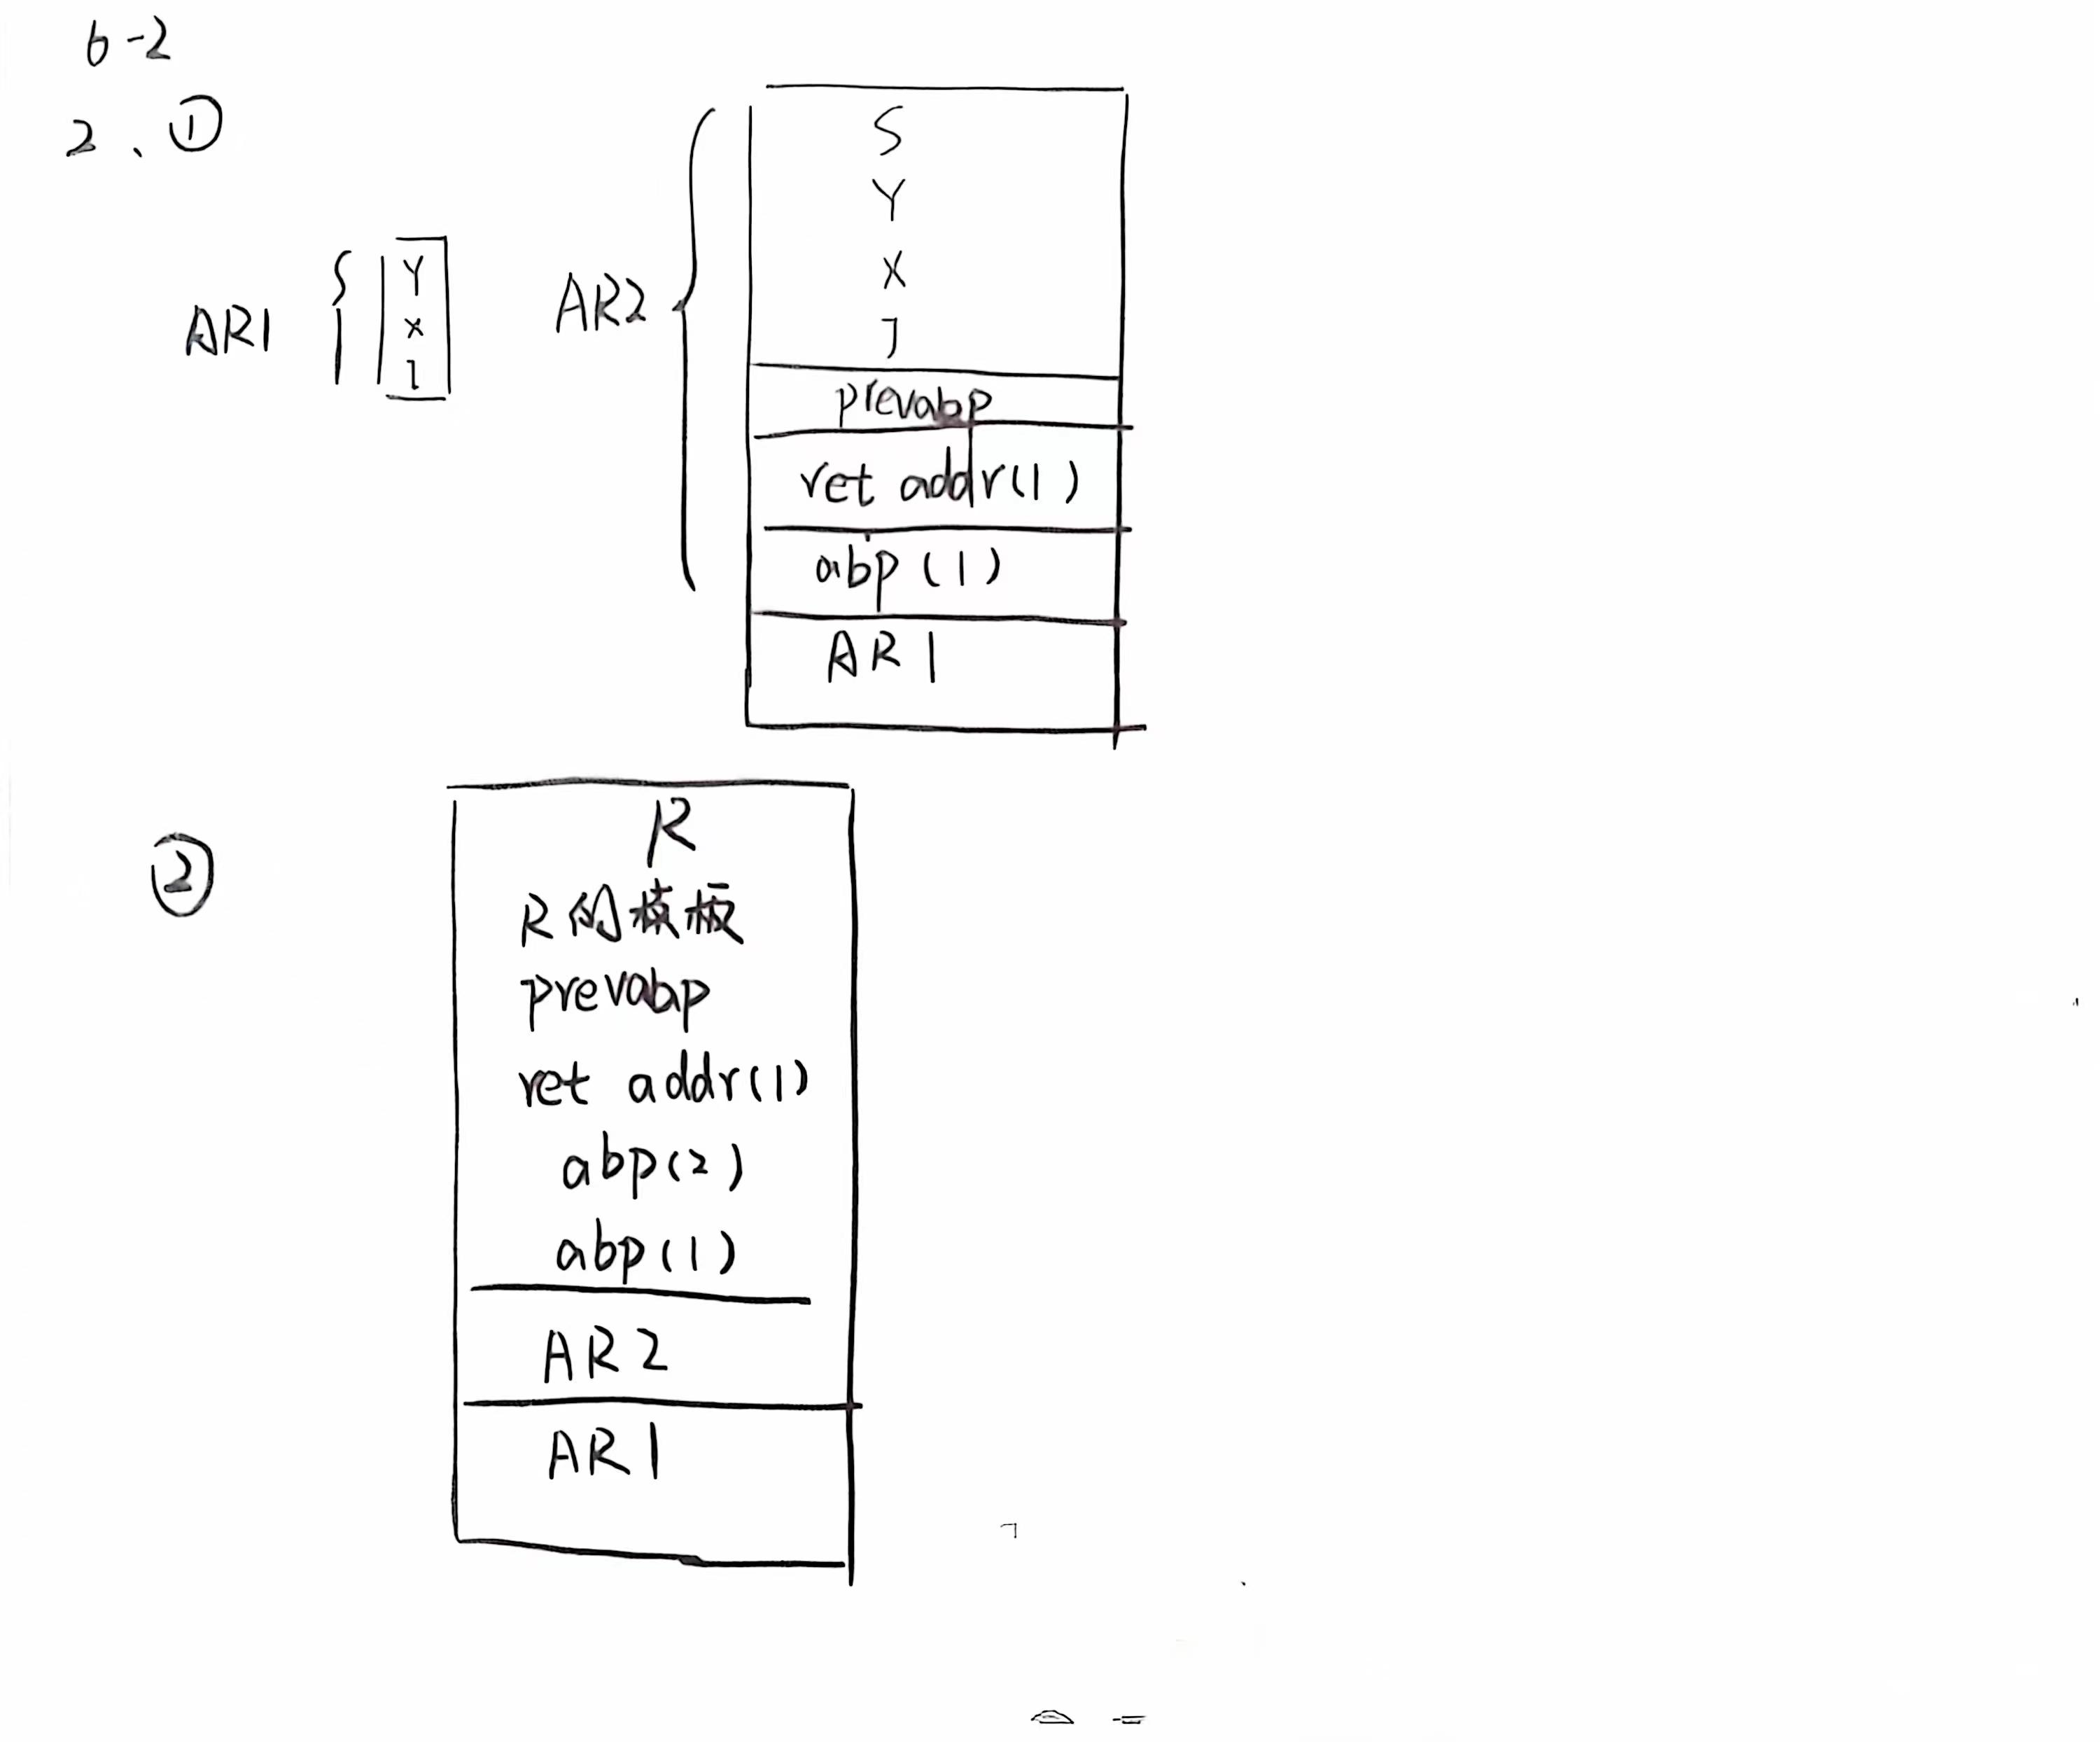 6-2
2、①
AR1
Y
X
I
AR2
S
Y
X
J
prevabp
ret addr(1)
abp(1)
AR1
②
R
R的模板
prevabp
ret addr(1)
abp(2)
abp(1)
AR2
AR1